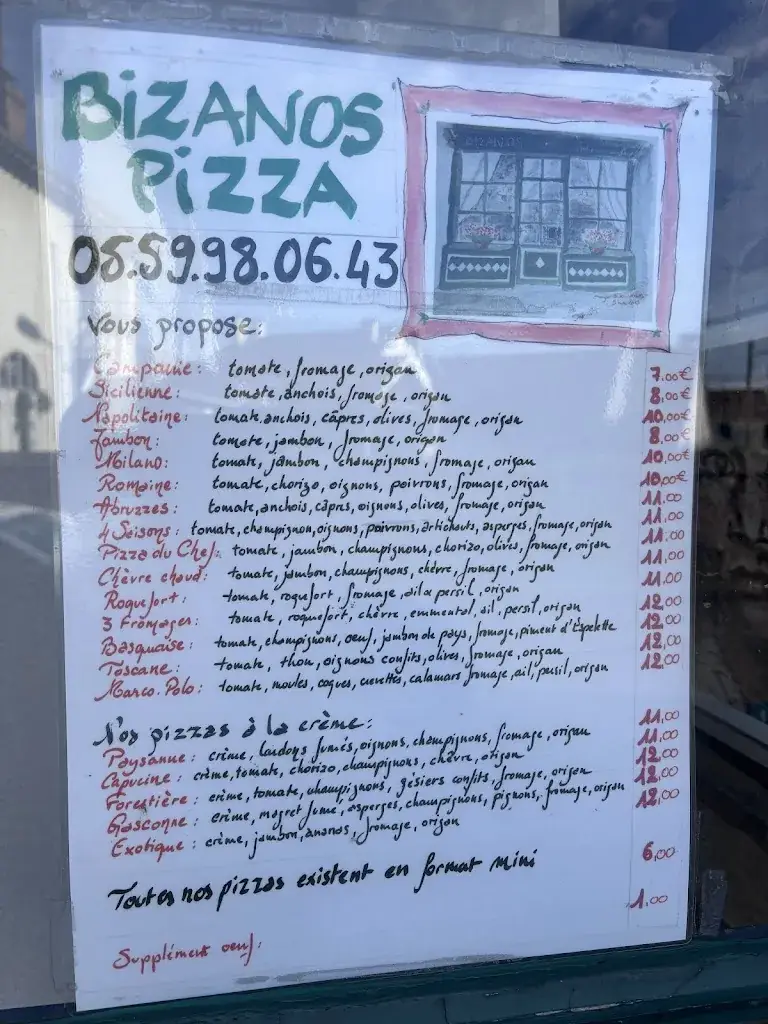 BiZANOS
PiZZA
05.59.98.06.43
Vous propose:
Campanie: tomate, fromage, origan 7.00€
Sicilienne: tomate, anchois, fromage, origan 8.00€
Napolitaine: tomate, anchois, câpres, olives, fromage, origan 10.00€
Jambon: tomate, jambon, fromage, origan 8.00€
Milano: tomate, jambon, champignons, fromage, origan 10.00€
Romaine: tomate, chorizo, oignons, poivrons, fromage, origan 10.00€
Abruzzes: tomate, anchois, câpres, oignons, olives, fromage, origan 11.00
4 Saisons: tomate, champignon, oignons, poivrons, artichauts, asperges, fromage, origan 11.00
Pizza du Chef: tomate, jambon, champignons, chorizo, olives, fromage, origan 11.00
Chèvre chaud: tomate, jambon, champignons, chèvre, fromage, origan 11.00
Roquefort: tomate, roquefort, fromage, ail & persil, origan 11.00
3 Fromages: tomate, roquefort, chèvre, emmental, ail, persil, origan 12.00
Basquaise: tomate, champignons, oeuf, jambon de pays, fromage, piment d'Espelette 12.00
Toscane: tomate, thon, oignons confits, olives, fromage, origan 12.00
Marco.Polo: tomate, moules, coques, crevettes, calamars fromage, ail, persil, origan 12.00
Nos pizzas à la crème:
Paysanne: crème, lardons fumés, oignons, champignons, fromage, origan 11.00
Capucine: crème, tomate, chorizo, champignons, chèvre, origan 11.00
Forestière: crème, tomate, champignons, gésiers confits, fromage, origan 12.00
Gasconne: crème, magret fumé, asperges, champignons, pignons, fromage, origan 12.00
Exotique: crème, jambon, ananas, fromage, origan 12.00
Toutes nos pizzas existent en format mini 6.00
Supplément oeuf: 1.00